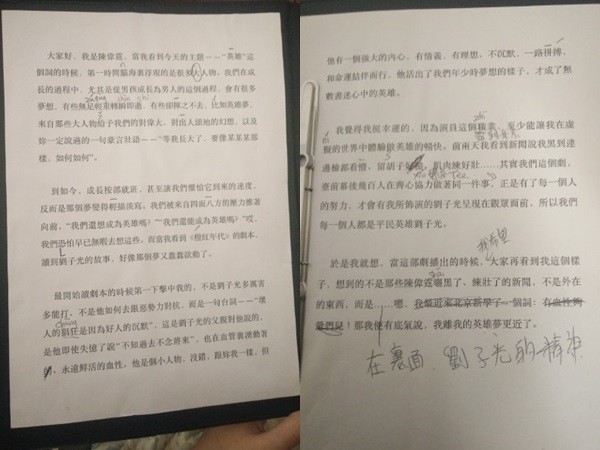 大家好，我是陳偉霆，當我看到今天的主題——“英雄”這
個詞的時候，第一時間腦海裏浮現的是很然人物，我們在成
長的過程中，尤其是從男孩成長為男人的這個過程，會有很多
夢想，有些無足輕重轉瞬即逝，有些揮之不去，比如英雄夢，
來自那些大人物給予我們的對偉大，對出人頭地的幻想，以及
妳一定說過的一句豪言壯語——“等我長大了，要像某某某那
樣，如何如何”。
到如今，成長按部就班，甚至讓我們懼怕它到來的速度，
反而是那個夢變得輕描淡寫。我們被來自四面八方的壓力推著
向前，“我們還想成為英雄嗎？”“我們還能成為英雄嗎？”哎，
我們恐怕早已無暇去想這些。而當我看到《橙紅年代》的劇本，
讀到劉子光的故事，好像那個夢又蠢蠢欲動了。
最開始讀劇本的時候第一下擊中我的，不是劉子光多厲害
多能打，不是他如何去跟惡勢力對抗，而是一句台詞——“壞
人的猖狂是因為好人的沉默”，這是劉子光的父親對他說的，
是他即使失憶了說“不知過去不念將來”，也在血管裏湧動著
永遠鮮活的血性。他是個小人物，沒錯，跟妳我一樣，但
他有一個強大的內心，有情義，有理想，不沉默，一路拼搏，
和命運結伴而行，他活出了我們年少時夢想的樣子，才成了無
數書迷心中的英雄。
我覺得我挺幸運的，因為演員這個職業，至少能讓我在虛
擬的世界中體驗做英雄的暢快。前兩天我看到新聞說我黑到連
過檢都看懵，留胡子
肌肉練好壯……其實我們這個劇，
臺前幕後幾百人在齊心協力做著同一件事，正是有了每一個人
的努力，才會有我所飾演的劉子光呈現在觀眾面前，所以我們
每一個人都是平民英雄劉子光。
我希望
於是我就想，當這部劇播出的時候，大家再看到我這個樣
子，想到的不是那些陳偉霆曬黑了，練壯了的新聞，不是外在
的東西，而是……嗯，我最近來北京新學了一個詞：有血性夠
爺們兒！那我便有底氣說，我離我的英雄夢更近了。
在裏面，劉子光的精神